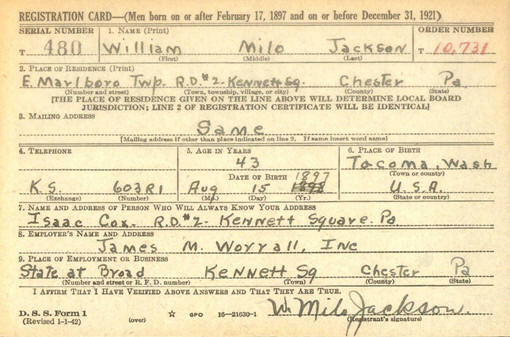 REGISTRATION CARD—(Men born on or after February 17, 1897 and on or before December 31, 1921)
SERIAL NUMBER 1. NAME (Print) ORDER NUMBER
T 480 William Milo Jackson T 10,731
(First) (Middle) (Last)
2. PLACE OF RESIDENCE (Print)
E. Marlboro Twp. R.D.#2- Kennett Sq. Chester Pa
(Number and street) (Town, township, village, or city) (County) (State)
[THE PLACE OF RESIDENCE GIVEN ON THE LINE ABOVE WILL DETERMINE LOCAL BOARD
JURISDICTION; LINE 2 OF REGISTRATION CERTIFICATE WILL BE IDENTICAL]
3. MAILING ADDRESS
Same
[Mailing address if other than place indicated on line 2. If same insert word same]
4. TELEPHONE 5. AGE IN YEARS 6. PLACE OF BIRTH
43 Tacoma, Wash
DATE OF BIRTH (Town or county)
1897
K.S. 603R1 Aug 15 1898 U.S.A.
(Exchange) (Number) (Mo.) (Day) (Yr.) (State or country)
7. NAME AND ADDRESS OF PERSON WHO WILL ALWAYS KNOW YOUR ADDRESS
Isaac Cox. R.D.#2- Kennett Square. Pa
8. EMPLOYER'S NAME AND ADDRESS
James M. Worrall, Inc
9. PLACE OF EMPLOYMENT OR BUSINESS
State at Broad Kennett Sq Chester Pa
(Number and street or R. F. D. number) (Town) (County) (State)
I AFFIRM THAT I HAVE VERIFIED ABOVE ANSWERS AND THAT THEY ARE TRUE.
W. Milo Jackson.
D. S. S. Form 1
(Revised 1-1-42) (over) ☆ GPO 16—21630-1 (Registrant's signature)